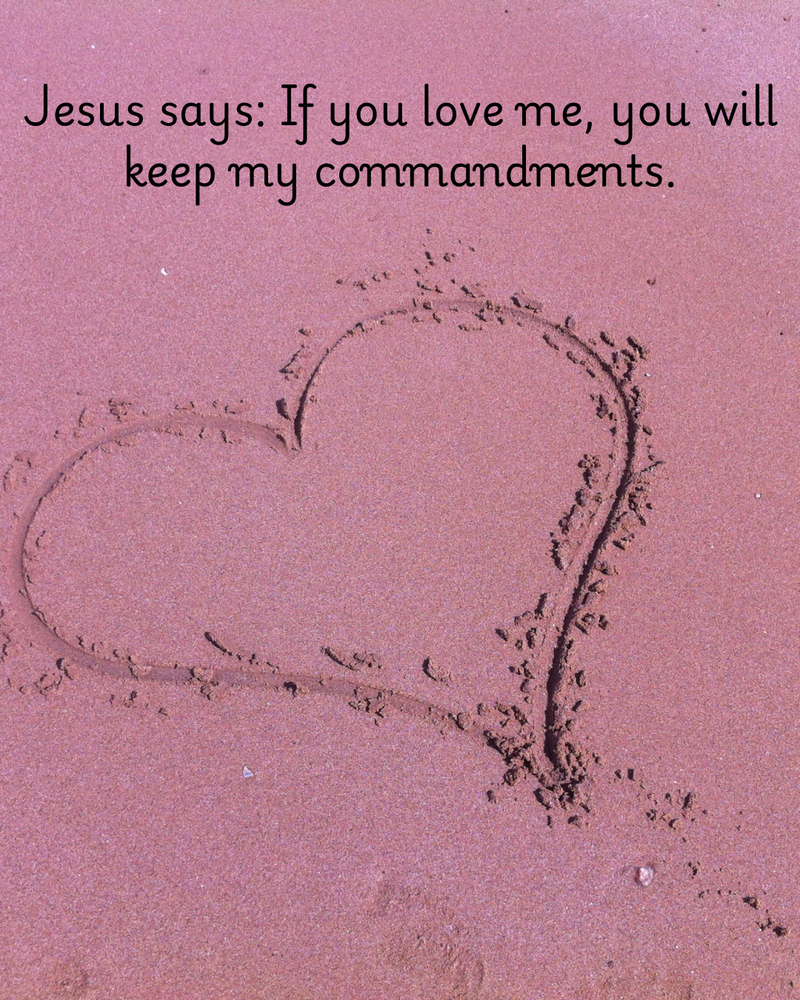 Jesus says: If you love me, you will
keep my commandments.